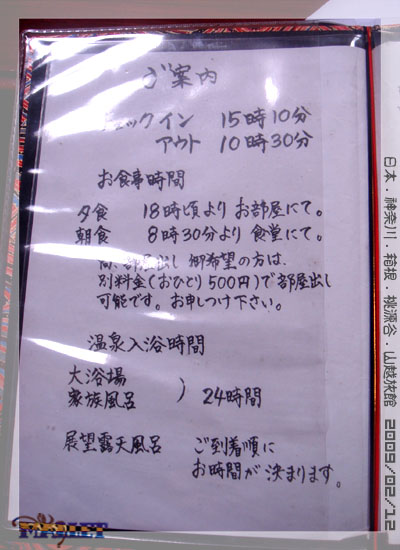 ご案内
チェックイン 15時10分
アウト 10時30分
お食事時間
夕食 18時頃より お部屋にて。
朝食 8時30分より 食堂にて。
尚、部屋出し 御希望の方は、
別料金(おひとり500円)で部屋出し
可能です。お申しつけ下さい。
温泉入浴時間
大浴場
家族風呂 ) 24時間
展望露天風呂 ご到着順に
お時間が決まります。
日本.神奈川.箱根.桃源谷.山越旅館 2009/02/12